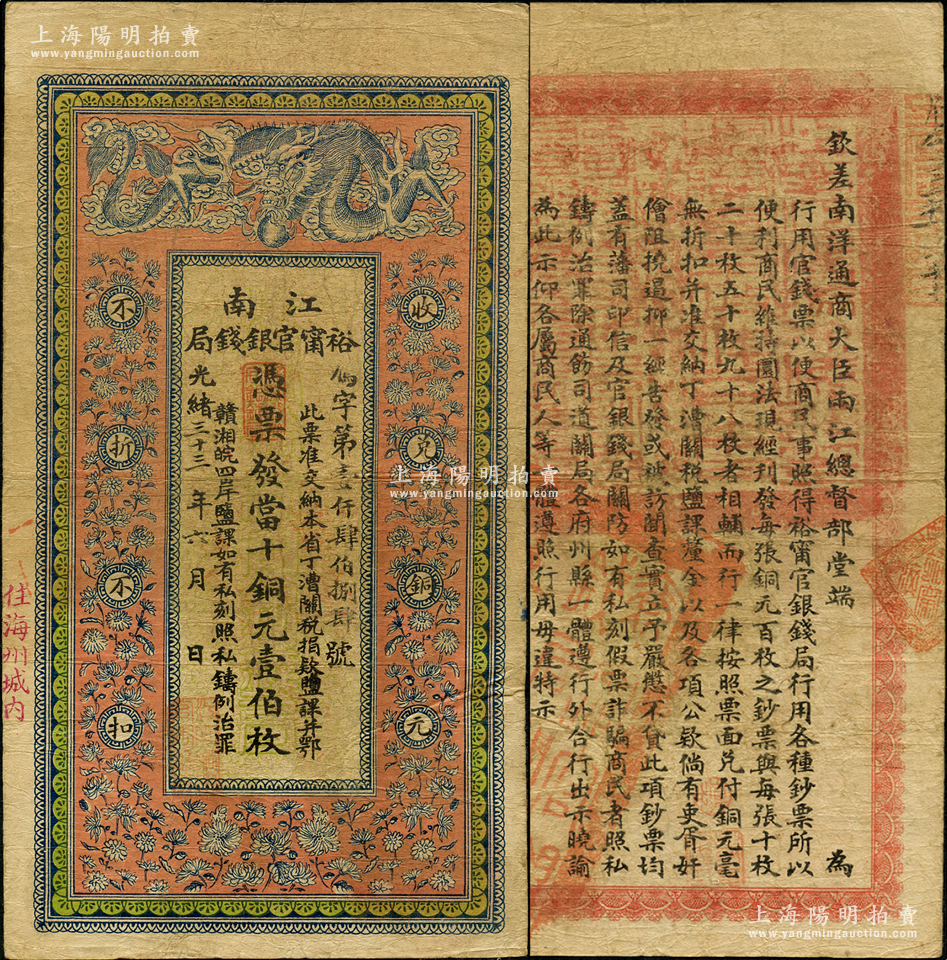 上海陽明拍賣
www.yangmingauction.com
江南
裕甯官銀錢局
字第壹仟肆伯捌肆號
此票准交納本省丁漕關稅捐款鹽課并鄂
憑票發當十銅元壹伯枚
贛湘皖四岸鹽課如有私刻照私鑄例治罪
光緒三十三年六月 日
收兌銅元
不折不扣
住海州城内
欽差南洋通商大臣兩江總督部堂端 為
行用官錢票以便商民事照得裕甯官銀錢局行用各種鈔票所以
便利商民維持圜法現經刊發每張銅元百枚之鈔票與每張十枚
二十枚五十枚九十八枚者相輔而行一律按照票面兌付銅元毫
無折扣并准交納丁漕關稅鹽課釐金以及各項公款倘有吏胥奸
儈阻撓遏抑一經告發或被訪聞查實立予嚴懲不貸此項鈔票均
蓋有藩司印信及官銀錢局關防如有私刻假票詐騙商民者照私
鑄例治罪除通飭司道關局各府州縣一體遵行外合行出示曉諭
為此示仰各屬商民人等一體遵照行用毋違特示
上海陽明拍賣
www.yangmingauction.com
上海陽明拍賣
www.yangmingauction.com